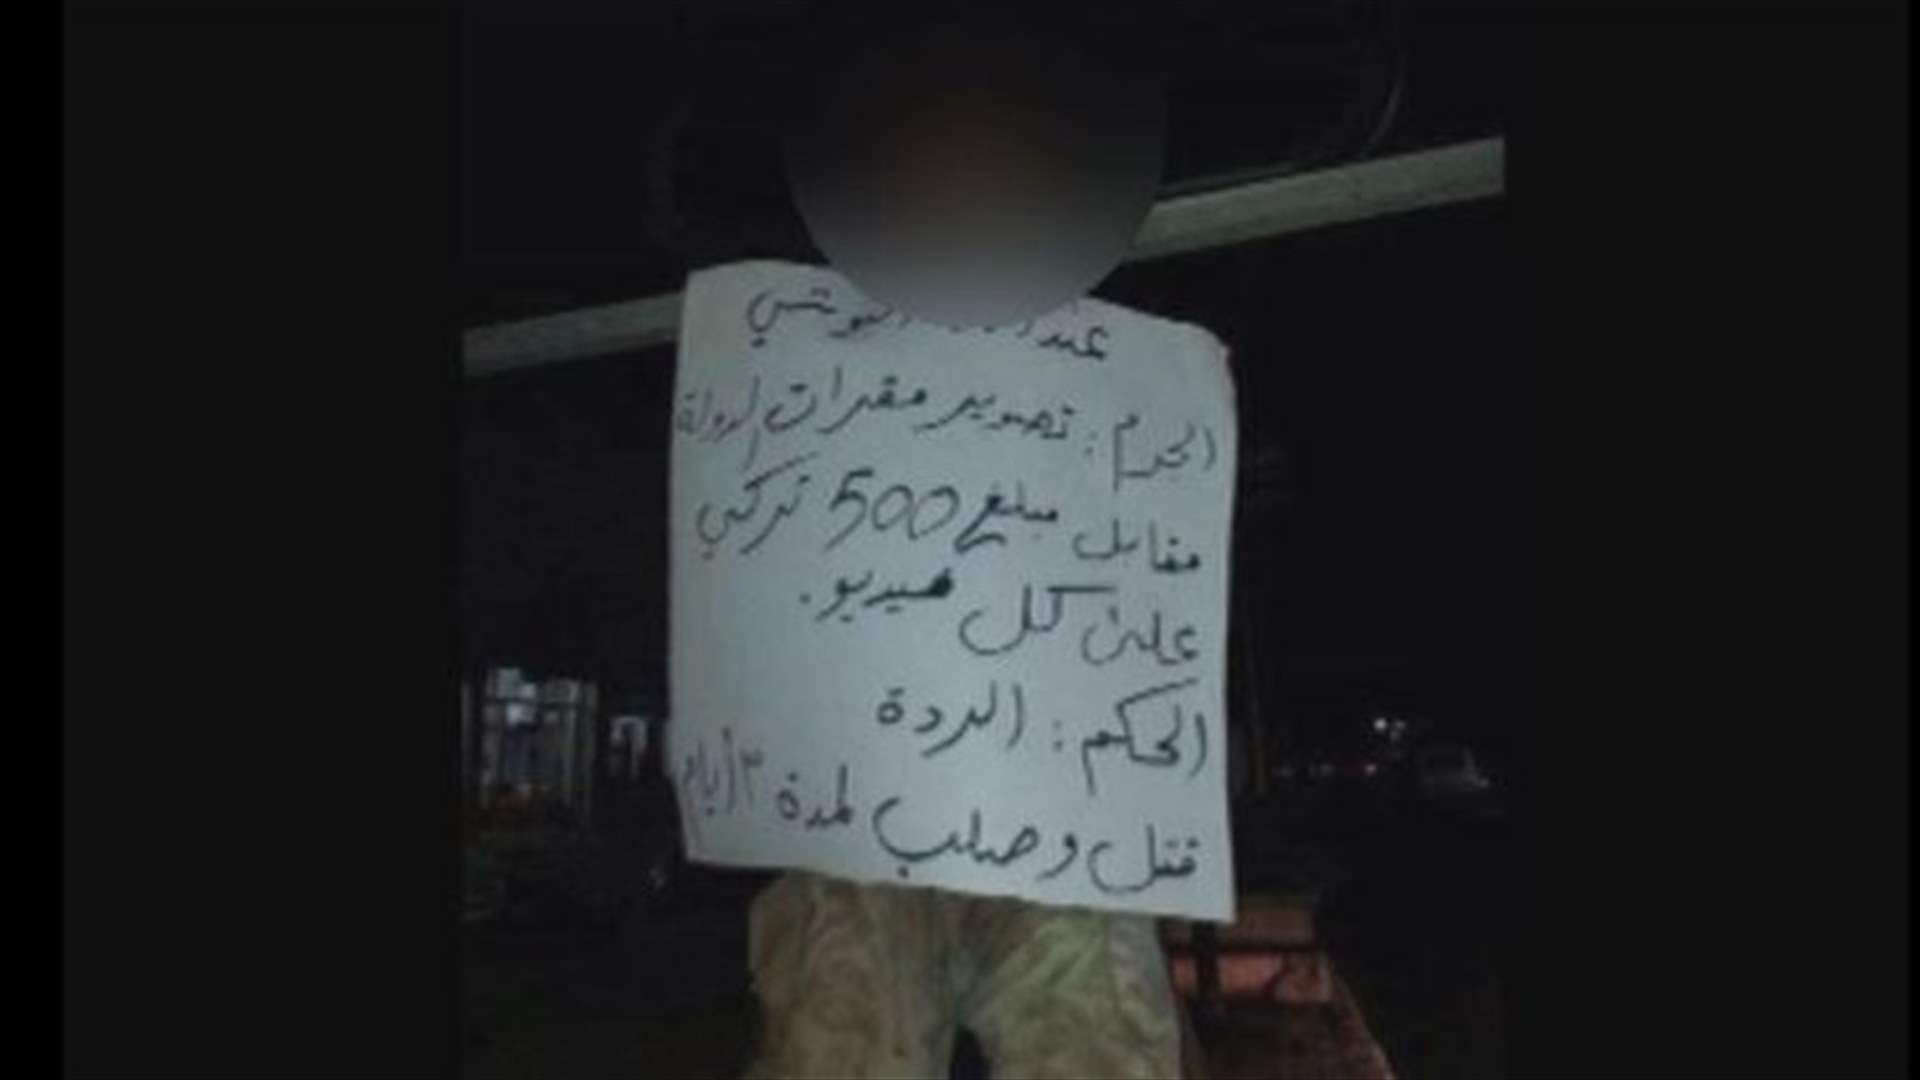 الجرم: تصوير مقرات الدولة
مقابل مبلغ 500 تركي
على كل فيديو.
الحكم: الردة
قتل وصلب لمدة ٣ أيام